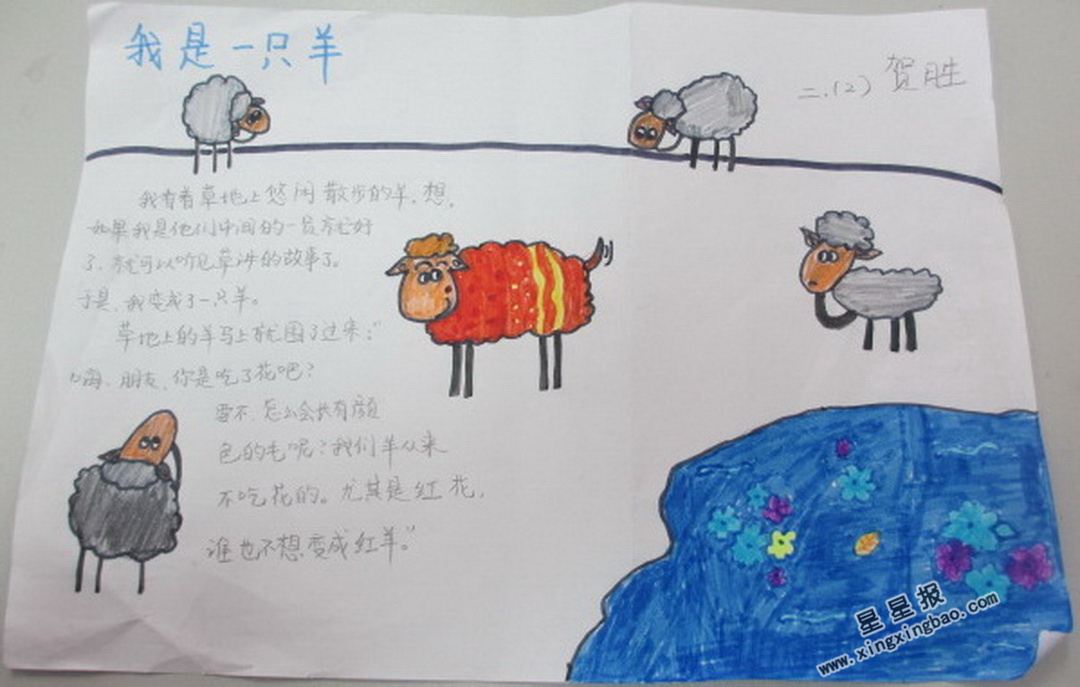 我是一只羊
二.(2) 贺胜
我看着草地上悠闲散步的羊，想，
如果我是他们中间的一员就好
了，就可以听见草洼的故事了。
于是，我变成了一只羊。
草地上的羊马上就围了过来：“
“嗨，朋友，你是吃了花吧？
要不，怎么会长有颜
色的毛呢？我们羊从来
不吃花的。尤其是红花，
谁也不想变成红羊。”
星星报
www.xingxingbao.com